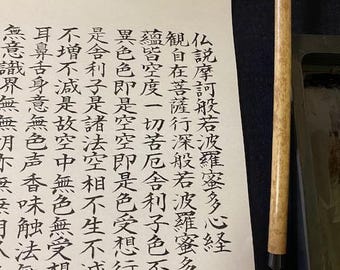 仏説摩訶般若波羅蜜多心経
観自在菩薩行深般若波羅蜜多
蘊皆空度一切苦厄舎利子色不
異色色即是空空即是色受想行
是舎利子是諸法空相不生不滅
不増不減是故空中無色無受想
耳鼻舌身意無色声香味触法
無意識界無無明亦無無明